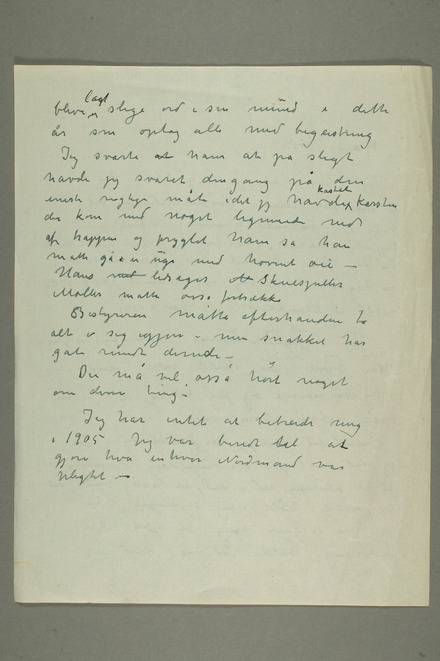 blive lagt slige ord i sin mund i dette
år som optog alle med begeistring
Jeg svarte at ham at på sligt
havde jeg svaret dengang på den
eneste måte idet jeg havde kastet Karsten
der kom med noget lignende ned
af trappen og pryglet ham så han
måtte gå en uge med hovent øie –
Hans ledsager Skuespiller
Møller måtte også fortrække
Bestyreren måtte efterhånden ta
alt i sig igjen – men snakket har
gåt rundt
Du må vel også hørt noget
om denne ting –
Jeg har intet at bebreide mig
i 1905 Jeg var beredt til at
gjøre hva enhver Nordmand var
pligtig –